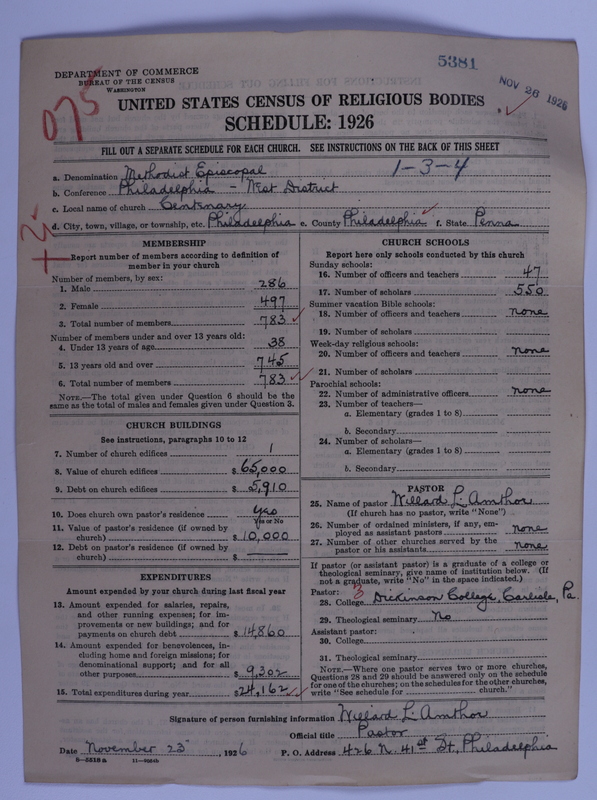 5381
DEPARTMENT OF COMMERCE
BUREAU OF THE CENSUS
WASHINGTON
NOV 26 1926
075
UNITED STATES CENSUS OF RELIGIOUS BODIES
SCHEDULE: 1926
FILL OUT A SEPARATE SCHEDULE FOR EACH CHURCH. SEE INSTRUCTIONS ON THE BACK OF THIS SHEET
a. Denomination Methodist Episcopal 1-3-4
b. Conference Philadelphia - West District
c. Local name of church Centenary
d. City, town, village, or township, etc. Philadelphia e. County Philadelphia f. State Penna
MEMBERSHIP
Report number of members according to definition of
member in your church
Number of members, by sex:
1. Male 286
2. Female 497
3. Total number of members 783
Number of members under and over 13 years old:
4. Under 13 years of age 38
5. 13 years old and over 745
6. Total number of members 783
NOTE.—The total given under Question 6 should be the
same as the total of males and females given under Question 3.
CHURCH BUILDINGS
See instructions, paragraphs 10 to 12
7. Number of church edifices 1
8. Value of church edifices $ 65,000
9. Debt on church edifices $ 5,910
10. Does church own pastor's residence yes
Yes or No
11. Value of pastor's residence (if owned by
church) $ 10,000
12. Debt on pastor's residence (if owned by
church) $
EXPENDITURES
Amount expended by your church during last fiscal year
13. Amount expended for salaries, repairs,
and other running expenses; for im-
provements or new buildings; and for
payments on church debt $ 14,860
14. Amount expended for benevolences, in-
cluding home and foreign missions; for
denominational support; and for all
other purposes $ 9,302
15. Total expenditures during year $ 24,162
CHURCH SCHOOLS
Report here only schools conducted by this church
Sunday schools:
16. Number of officers and teachers 47
17. Number of scholars 550
Summer vacation Bible schools:
18. Number of officers and teachers none
19. Number of scholars
Week-day religious schools:
20. Number of officers and teachers none
21. Number of scholars
Parochial schools:
22. Number of administrative officers none
23. Number of teachers—
a. Elementary (grades 1 to 8)
b. Secondary
24. Number of scholars—
a. Elementary (grades 1 to 8)
b. Secondary
PASTOR
25. Name of pastor Willard L. Amthor
(If church has no pastor, write "None")
26. Number of ordained ministers, if any, em-
ployed as assistant pastors none
27. Number of other churches served by the
pastor or his assistants none
If pastor (or assistant pastor) is a graduate of a college or
theological seminary, give name of institution below. (If
not a graduate, write "No" in the space indicated.)
Pastor: 3
28. College Dickinson College, Carlisle, Pa.
29. Theological seminary No
Assistant pastor:
30. College
31. Theological seminary
NOTE.—Where one pastor serves two or more churches,
Questions 28 and 29 should be answered only on the schedule
for one of the churches; on the schedules for the other churches,
write "See schedule for church."
Signature of person furnishing information Willard L. Amthor
Official title Pastor
Date November 25 1926 P. O. Address 426 N. 41st St, Philadelphia